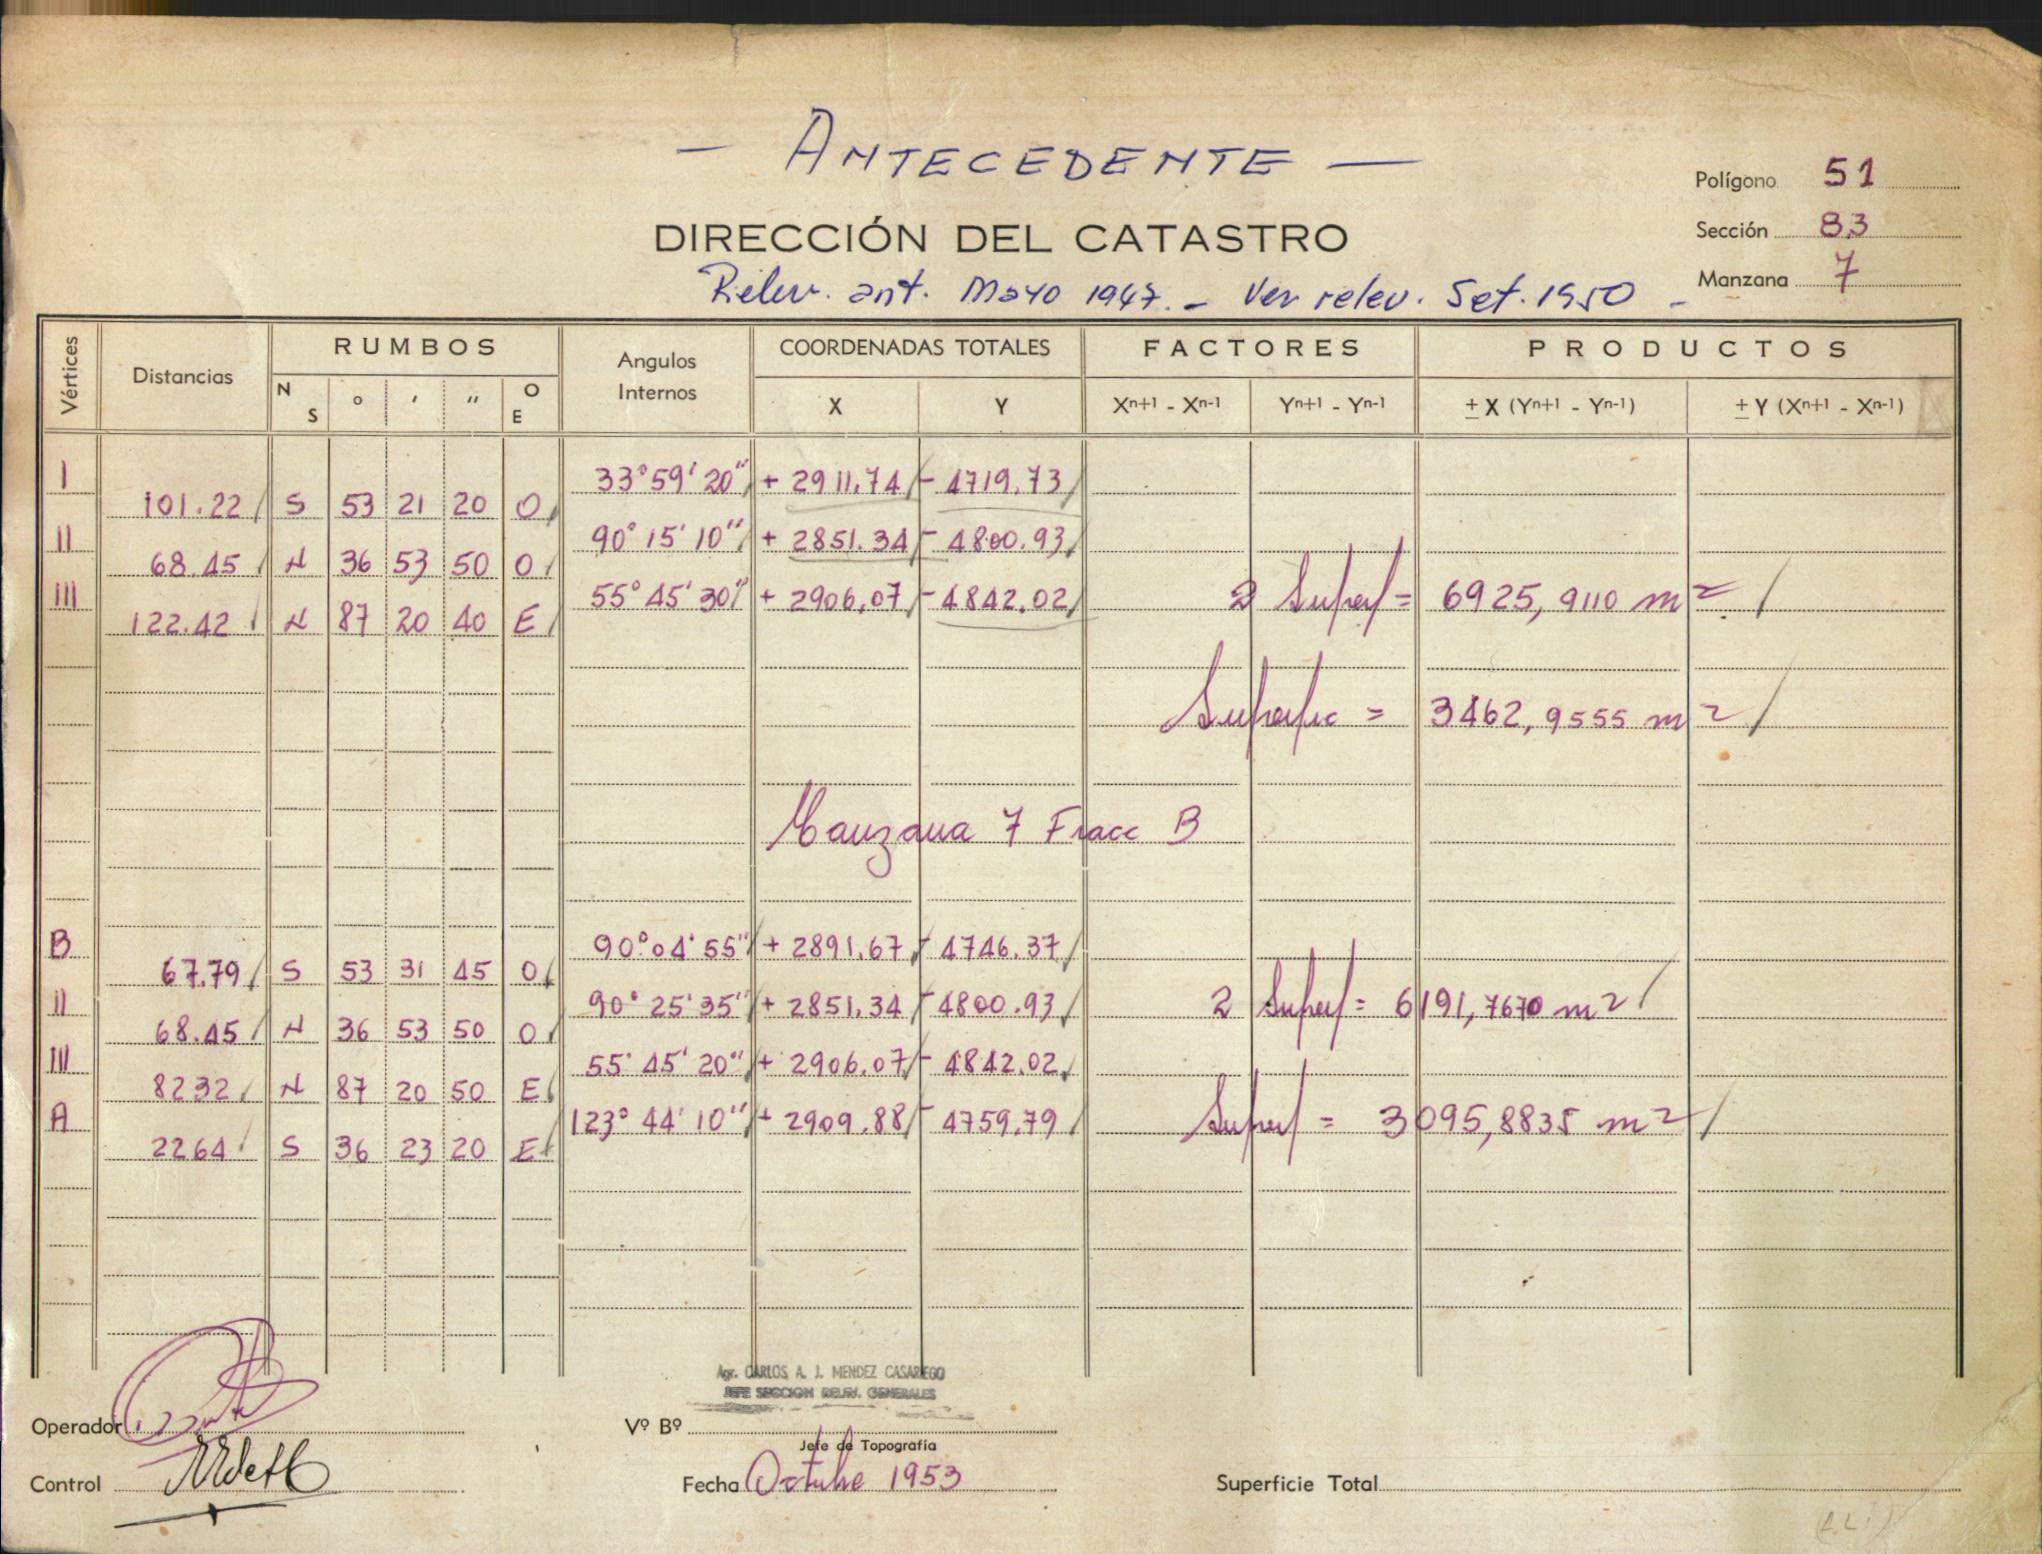 — ANTECEDENTE —
Polígono 51
DIRECCIÓN DEL CATASTRO
Sección 83
Manzana 7
Relev. ant. Mayo 1947. - Ver relev. Set. 1950 -
Vértices Distancias RUMBOS Angulos Internos COORDENADAS TOTALES FACTORES PRODUCTOS
N S ° ' " O E X Y Xⁿ⁺¹ - Xⁿ⁻¹ Yⁿ⁺¹ - Yⁿ⁻¹ ± X (Yⁿ⁺¹ - Yⁿ⁻¹) ± Y (Xⁿ⁺¹ - Xⁿ⁻¹)
I 33° 59' 20" + 2911,74 - 4719,73
101.22 S 53 21 20 O
II 90° 15' 10" + 2851.34 - 4800.93
68.45 N 36 53 50 O
III 55° 45' 30" + 2906,07 - 4842,02 2 Superf = 6925,9110 m²
122.42 N 87 20 40 E
Superfic = 3462,9555 m²
Manzana 7 Fracc B
B 90° 04' 55" + 2891,67 - 4746,37
67.79 S 53 31 45 O
II 90° 25' 35" + 2851,34 - 4800.93 2 Superf = 6191,7670 m²
68.45 N 36 53 50 O
III 55° 45' 20" + 2906.07 - 4842.02
8232 N 87 20 50 E
A 123° 44' 10" + 2909.88 - 4759,79 Superf = 3095,8835 m²
2264 S 36 23 20 E
Agr. CARLOS A. J. MENDEZ CASARIEGO
JEFE SECCION RELEV. GENERALES
Operador
Vº Bº
Jefe de Topografía
Control
Fecha Octubre 1953
Superficie Total